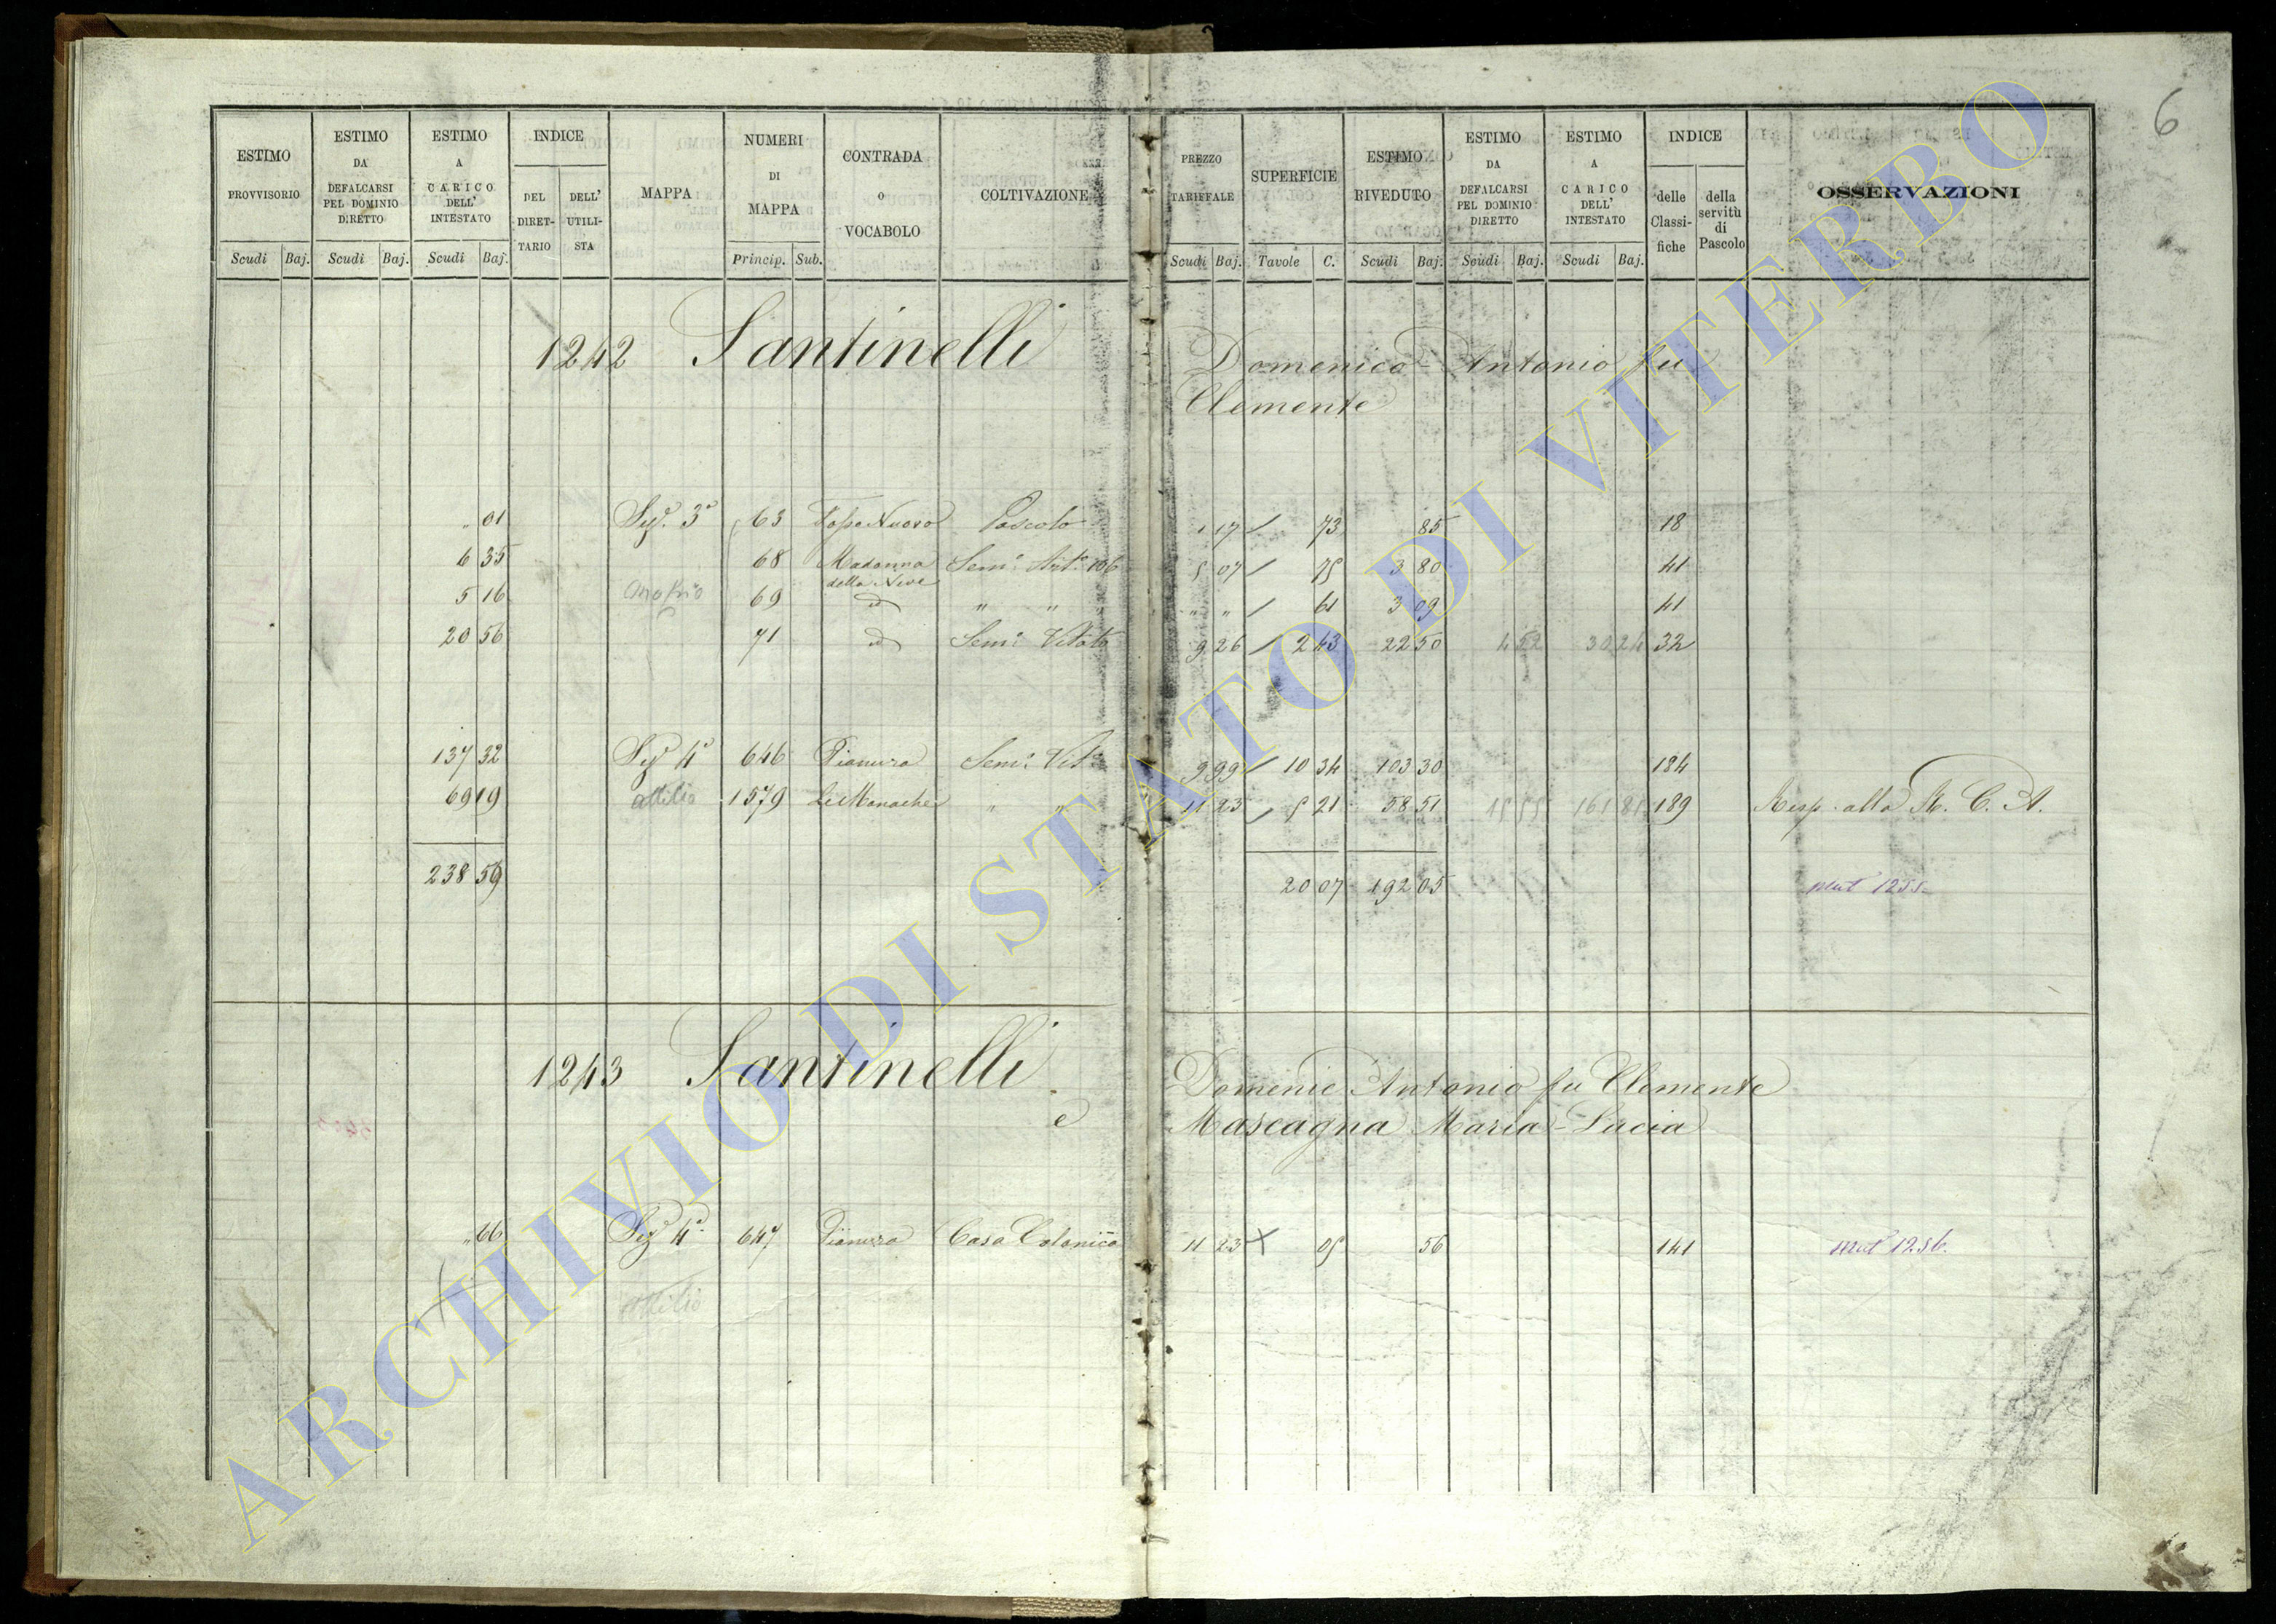 6
ESTIMO PROVVISORIO Scudi Baj.
ESTIMO DA DEFALCARSI PEL DOMINIO DIRETTO Scudi Baj.
ESTIMO A CARICO DELL' INTESTATO Scudi Baj.
INDICE DEL DIRET- TARIO DELL' UTILI- STA
MAPPA
NUMERI DI MAPPA Princip. Sub.
CONTRADA o VOCABOLO
COLTIVAZIONE
PREZZO TARIFFALE Scudi Baj.
SUPERFICIE Tavole C.
ESTIMO RIVEDUTO Scudi Baj.
ESTIMO DA DEFALCARSI PEL DOMINIO DIRETTO Scudi Baj.
ESTIMO A CARICO DELL' INTESTATO Scudi Baj.
INDICE delle Classi- fiche della servitù di Pascolo
OSSERVAZIONI
1242 Santinelli Domenico Antonio fu
Clemente
" 01 Sez. 3a 63 Pascolo 1 17 / 73 85 18
6 35 68 Madonna della Neve Sem. 106 5 07 / 75 3 80 41
5 16 69 d " " " " / 61 3 09 41
20 56 71 d Sem. Vitato 9 26 / 2 43 22 50 4 52 30 24 32
137 32 Sez. 4a 646 Pianura Sem. Vit. 9 99 / 10 34 103 30 184
69 19 attilio 1579 Le Monache " " 11 23 / 5 21 58 51 15 55 161 81 189 Resp. alla R. C. A.
238 59 20 07 192 05 1255
1243 Santinelli Domenic Antonio fu Clemente
e Mascagna Maria-Lucia
" 66 Sez. 4a 647 Pianura Casa Colonica 11 23 X 05 56 141 1256.
attilio
ARCHIVIO DI STATO DI VITERBO